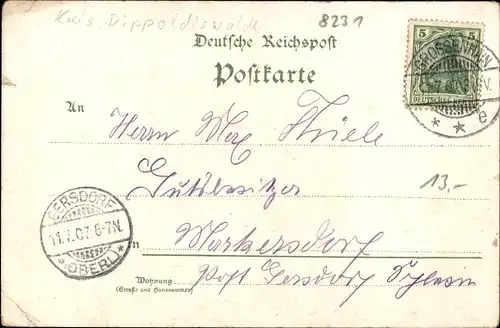 Kreis Dippoldiswalde
8231
Deutsche Reichspost
Postkarte
5 5
DEUTSCHES REICH
GROSSENHAIN
* * e
An
Herrn Max Thiele
Gutsbesitzer
13,-
GERSDORF
11.7.07. 6-7N.
* OBERL. *
in Markersdorf
Wohnung
(Straße und Hausnummer)
Post Gersdorf Schlesien